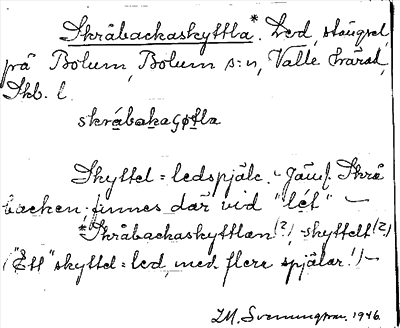 Skråbackaskyttla*. Led, stängsel,
på Bolum, Bolum s:n, Valle härad,
Skb. l.
skråbakaʂøtla
Skyttel = ledspjäle. - Jämf. Skrå
backen; finnes där vid "lét" -
*Skråbackaskyttlan (?), skyttelt (?)
("Ett" skyttel = led, med flere spjälar!) -
I.M. Svenningson. 1946.